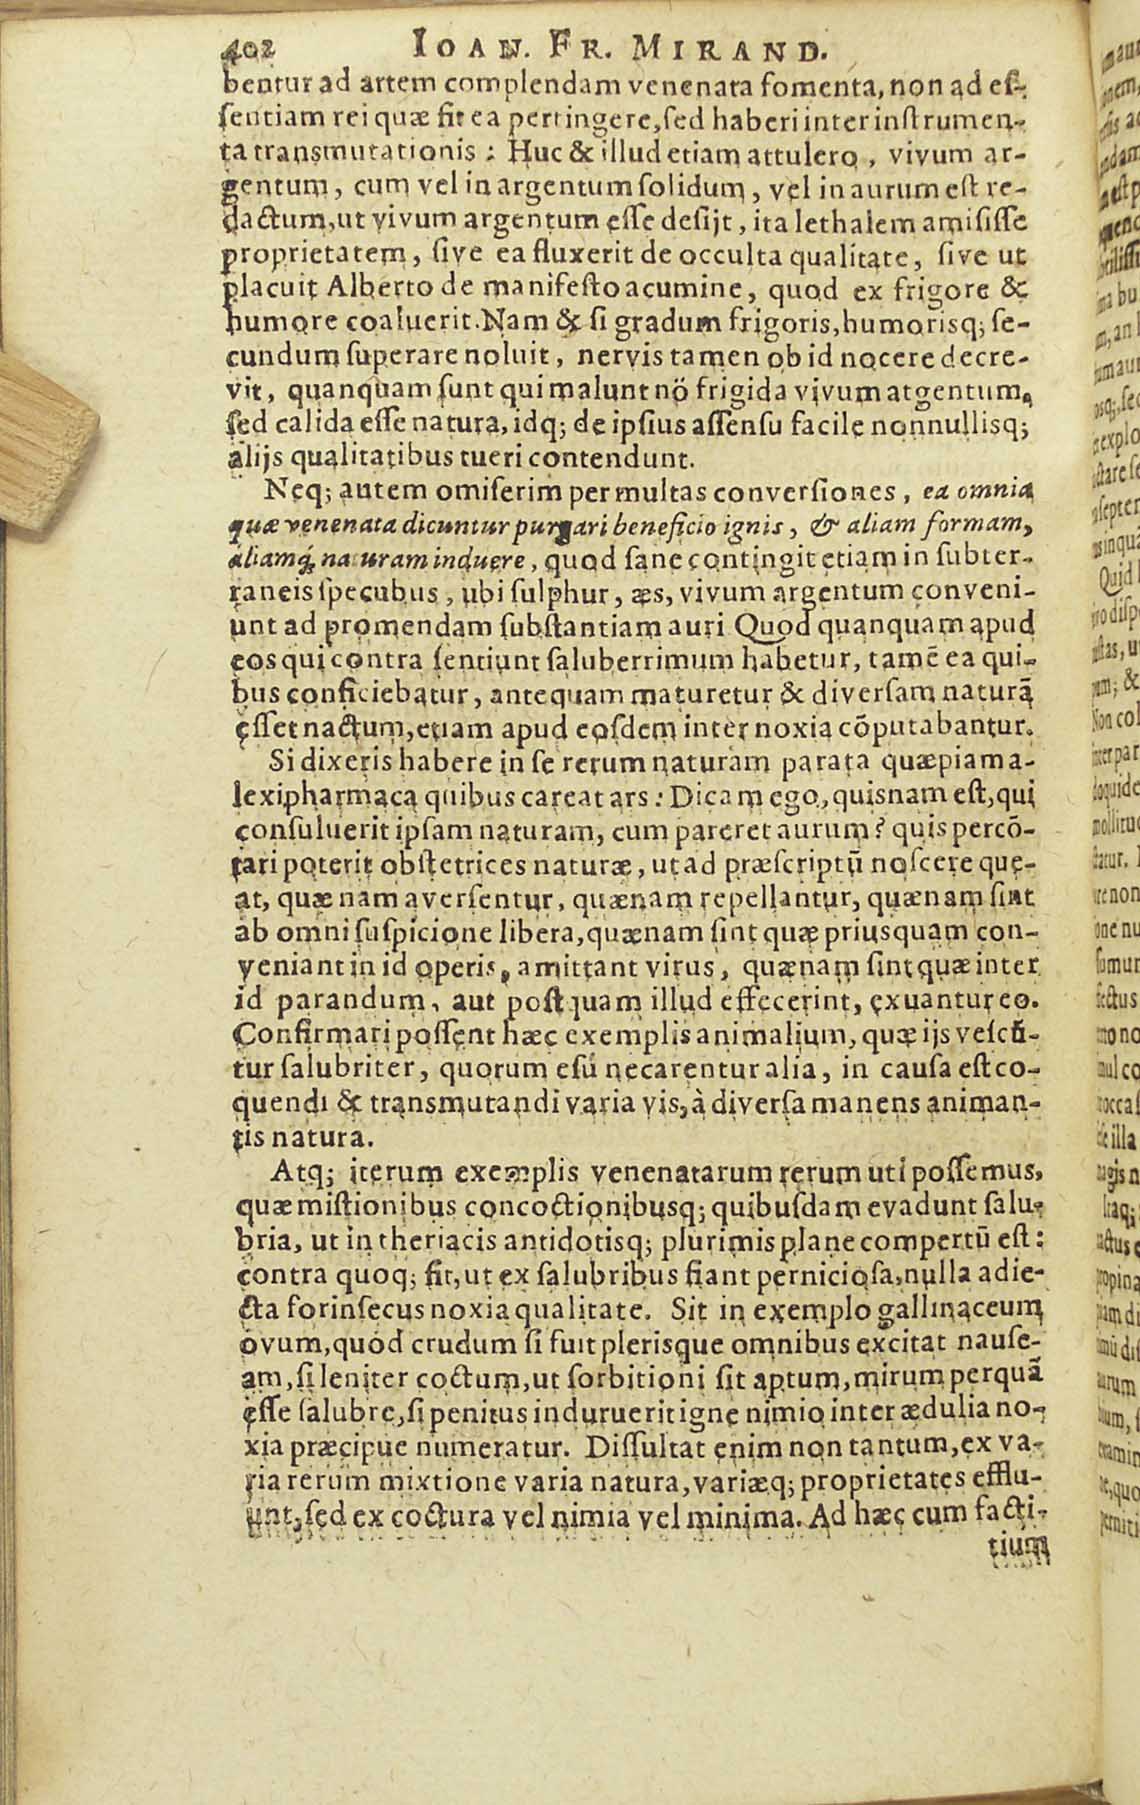 402 IOAN. FR. MIRAND.
bentur ad artem complendam venenata fomenta, non ad eſ-
ſentiam rei quæ fit ea pertingere, ſed haberi inter inſtrumen-
ta transmutationis: Huc & illud etiam attulero, vivum ar-
gentum, cum vel in argentum ſolidum, vel in aurum eſt re-
dactum, ut vivum argentum eſſe deſijt, ita lethalem amiſiſſe
proprietatem, ſive ea fluxerit de occulta qualitate, ſive ut
placuit Alberto de manifeſto acumine, quod ex frigore &
humore coaluerit. Nam & ſi gradum frigoris, humorisq; ſe-
cundum ſuperare noluit, nervis tamen ob id nocere decre-
vit, quanquam ſunt qui malunt nõ frigida vivum atgentum,
ſed calida eſſe natura, idq; de ipſius aſſenſu facile nonnullisq;
alijs qualitatibus tueri contendunt.
Neq; autem omiſerim per multas converſiones, ea omnia
quæ venenata dicuntur purgari beneficio ignis, & aliam formam,
aliamq́; naturam induere, quod ſane contingit etiam in ſubter-
raneis ſpecubus, ubi ſulphur, æs, vivum argentum conveni-
unt ad promendam ſubſtantiam auri Quod quanquam apud
eos qui contra ſentiunt ſaluberrimum habetur, tamē ea qui-
bus conficiebatur, antequam maturetur & diverſam naturā
eſſet nactum, etiam apud eoſdem inter noxia cōputabantur.
Si dixeris habere in ſe rerum naturam parata quæpiam a-
lexipharmaca quibus careat ars: Dicam ego, quisnam eſt, qui
conſuluerit ipſam naturam, cum pareret aurum? quis percō-
tari poterit obſtetrices naturæ, ut ad præſcriptū noſcere que-
at, quæ nam averſentur, quænam repellantur, quænam ſint
ab omni ſuſpicione libera, quænam ſint quæ priusquam con-
veniant in id operis, amittant virus, quænam ſint quæ inter
id parandum, aut poſtquam illud effecerint, exuantur eo.
Confirmari poſſent hæc exemplis animalium, quæ ijs veſcū-
tur ſalubriter, quorum eſu necarentur alia, in cauſa eſt co-
quendi & transmutandi varia vis, à diverſa manens animan-
tis natura.
Atq; iterum exemplis venenatarum rerum uti poſſemus,
quæ miſtionibus concoctionibusq; quibuſdam evadunt ſalu-
bria, ut in theriacis antidotisq; plurimis plane compertū eſt:
contra quoq; fit, ut ex ſalubribus fiant pernicioſa, nulla adie-
cta forinſecus noxia qualitate. Sit in exemplo gallinaceum
ovum, quod crudum ſi fuit plerisque omnibus excitat nauſe-
am, ſi leniter coctum, ut ſorbitioni ſit aptum, mirum perquā
eſſe ſalubre, ſi penitus indurуerit igne nimio inter ædulia no-
xia præcipue numeratur. Diſſultat enim non tantum, ex va-
ria rerum mixtione varia natura, variæq; proprietates efflu-
unt, ſed ex coctura vel nimia vel minima. Ad hæc cum facti-
tium